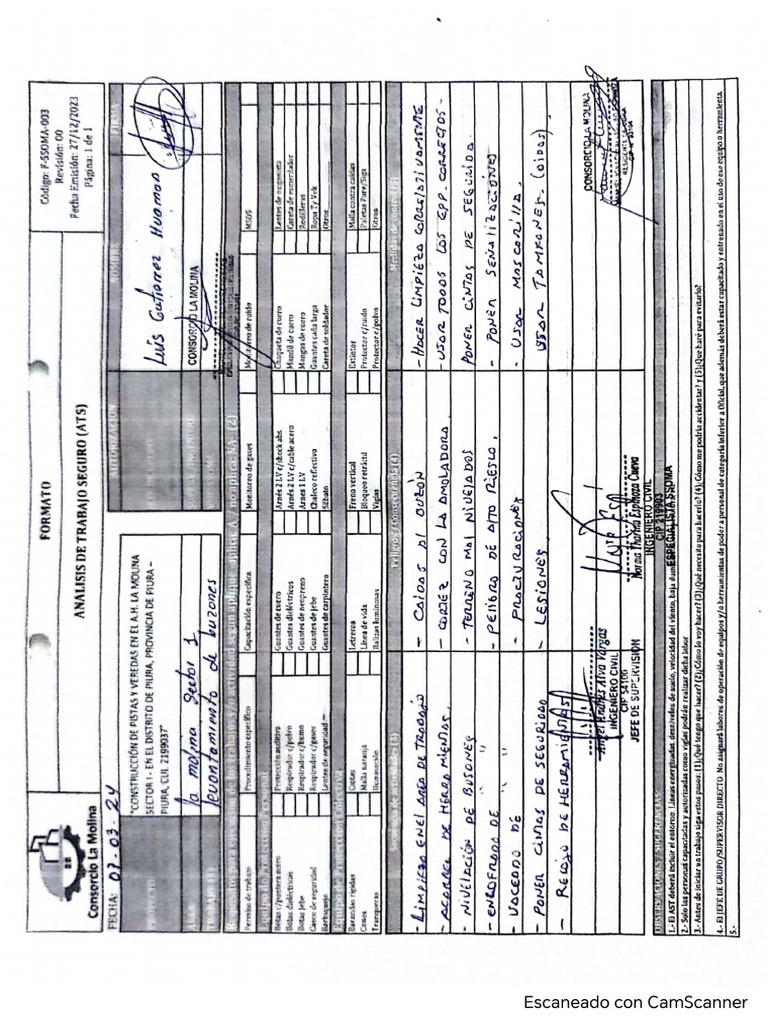 Consorcio La Molina
FORMATO
ANALISIS DE TRABAJO SEGURO (ATS)
Código: F-SSOMA-003
Revisión: 00
Fecha Emisión: 27/12/2023
Página: 1 de 1
FECHA: 07-03-24
"CONSTRUCCIÓN DE PISTAS Y VEREDAS EN EL A.H. LA MOLINA
SECTOR I - EN EL DISTRITO DE PIURA, PROVINCIA DE PIURA –
PIURA, CUI. 2199037"
la molina sector 1
levantamiento de buzones
Luis Gutierrez Huaman
CONSORCIO LA MOLINA
Permiso de trabajo Procedimiento específico Capacitación específica Monitoreo de gases Monitoreo de ruido MSDS
Botas c/puntera acero Protección auditiva Guantes de cuero Arnés 2 LV c/shock abs. Chaqueta de cuero Lentes de
Botas dieléctricas Respirador c/polvo Guantes dieléctricos Arnés 2 LV c/cable acero Mandil de cuero Careta de esmerilador
Botas Jebe Respirador c/humo Guantes de neopreno Arnes 1 LV Mangas de cuero Rodilleras
Casco de seguridad Respirador c/gases Guantes de Jebe Chaleco reflectivo Guantes caña larga Ropa Tyvek
Barbiquejo Lentes de seguridad Guantes de carpintero Careta de soldador Otros
Barandas rígidas Cintas Letreros Freno vertical Extintor Malla contra caídas
Conos Malla naranja Línea de vida Bloque retráctil Protector c/ruido Paletas Pare/Siga
Tranqueras Iluminación Balizas luminosas Vigías Protector c/polvo Otros
- LIMPIEZA EN EL AREA DE TRABAJO - CAIDAS AL BUZÓN - HACER LIMPIEZA CORRELATIVAMENTE
- ACARREO DE HERRAMIENTAS. - CORTEZ CON LA AMOLADORA. - USAR TODOS LOS EPP. CORRETOS -
- NIVELACIÓN DE BUSONES - TERRENO MAL NIVELADOS PONER CINTAS DE SEGURIDA.
- ENCOFRADO DE " - PELIGRO DE ALTO RIESGO. - PONER SEÑALIZACIÓNES
- VACEADO DE " - USAR MASCARILLA.
- PONER CINTAS DE SEGURIDAD - LESIONES. USAR TAMPONES. (OIDOS)
- RECOJO DE HERRAMIENTAS
Angel Andres Alva Vargas
INGENIERO CIVIL
CIP 54100
JEFE DE SUPERVISIÓN
Norma Tharina Espinoza Cueva
INGENIERO CIVIL
CIP 219903
ESPECIALISTA SSOMA
CONSORCIO LA MOLINA
RESIDENTE DE OBRA
1.- El AST deberá incluir el entorno: Líneas energizadas, desniveles de suelo, velocidad del viento, baja
2.- Solo las personas capacitadas y autorizadas como vigías podrán realizar dicha labor.
3.- Antes de iniciar un trabajo siga estos pasos: (1)¿Qué tengo que hacer? (2)¿Cómo lo voy hacer? (3)¿Qué necesito para hacerlo? (4)¿Cómo me podría accidentar? y (5)¿Que haré para evitarlo?
4.- El JEFE DE GRUPO/SUPERVISOR DIRECTO: No asignará labores de operación de equipos y/o herramientas de poder a personal de categoría inferior a Oficial, que además deberá estar capacitado y entrenado en el uso de ese equipo o herramienta.
5.-
Escaneado con CamScanner